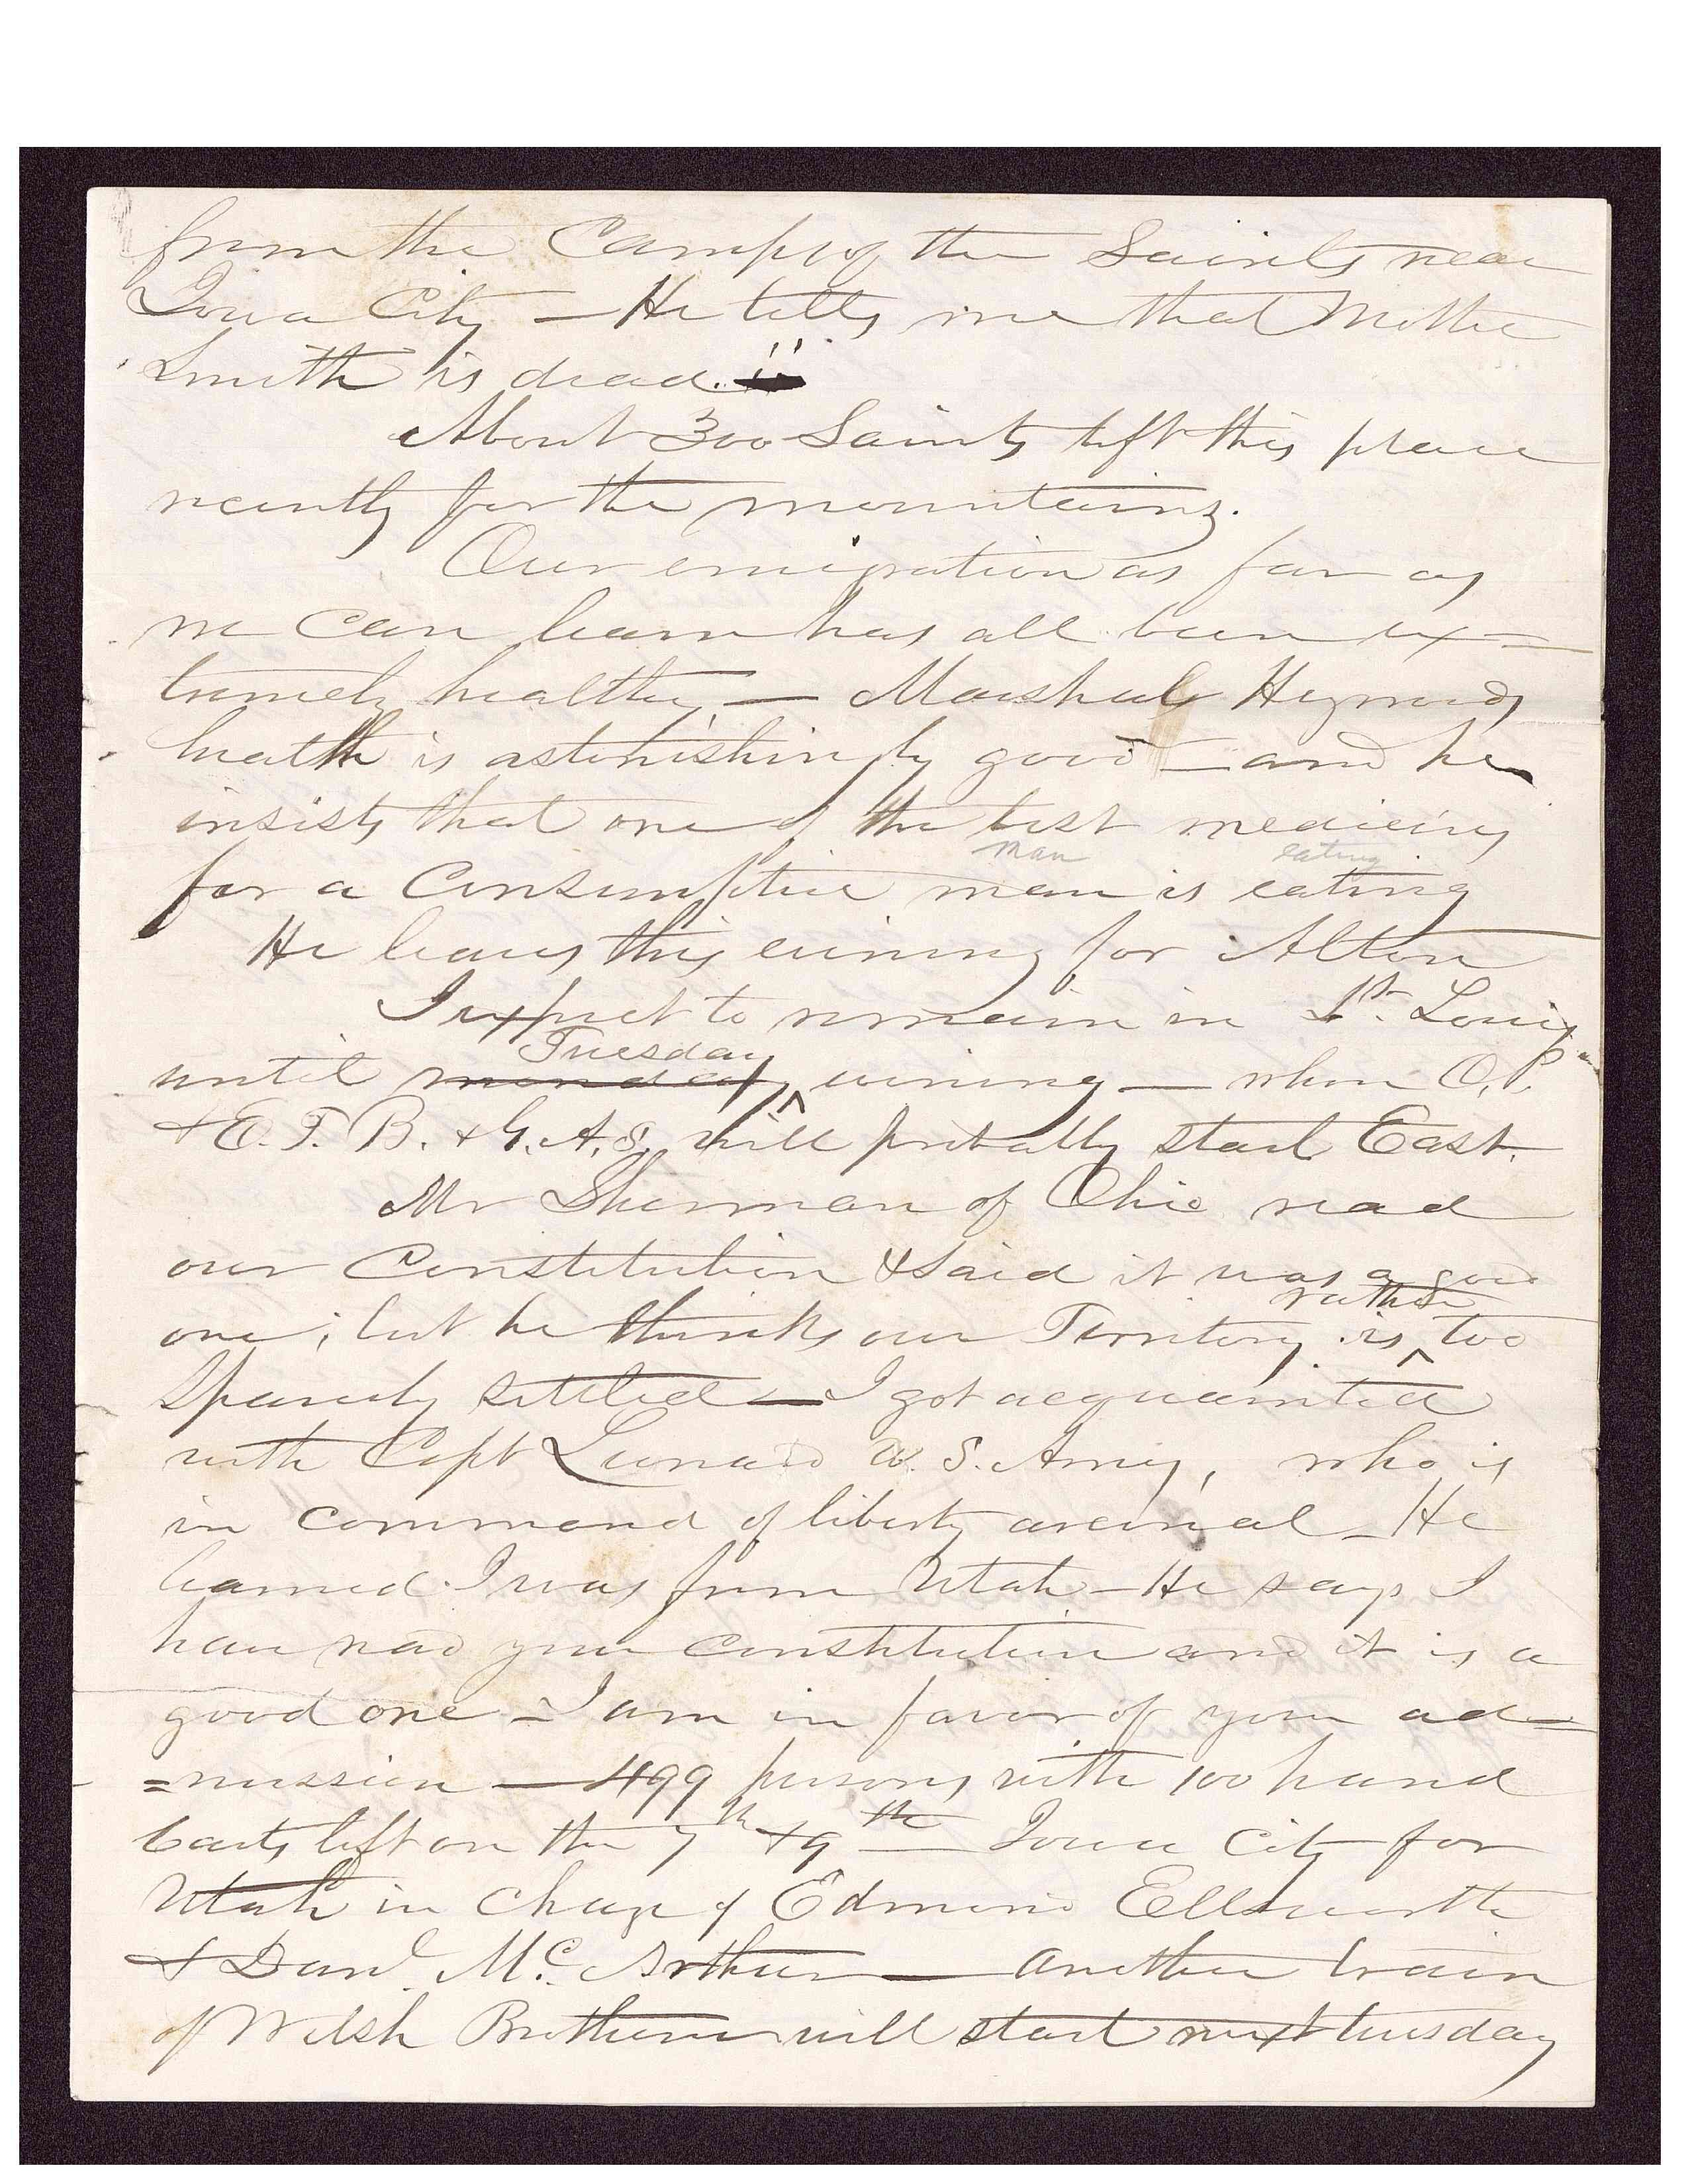 from the Camp of the Saints near
Iowa City — He tells me that Mother
Smith is dead.
About 300 Saints left this place
recently for the mountains.
Our emigration as far as
we can learn has all been ex=
tremely healthy, — Marshal Heywoods
health is astonishingly good — and he
insists that one of the best medicins
man eating
for a Consumptive man is eating
He leaves this evening for Alton
I expect to remain in St. Louis
Tuesday
until monday evening — when O. P.
& E. T. B. & G. A. S. will probably start East.
Mr Sherman of Ohio read
our Constitution & said it was a good
rather
one; but he thinks our Territory is ^ too
sparsely settled — I got acquainted
with Capt Leonard U. S. Army, who is
in command of liberty arcinal — He
learned I was from Utah — He says I
have read your constitution and it is a
good one — I am in favor of your ad=
=mission — 499 persons with 100 hand
Carts left on the 7th & 9th — Iowa City for
Utah in charge of Edmund Ellsworth
& Danl. Mc. Arthur — another train
of Welsh Brethern will start next tuesday